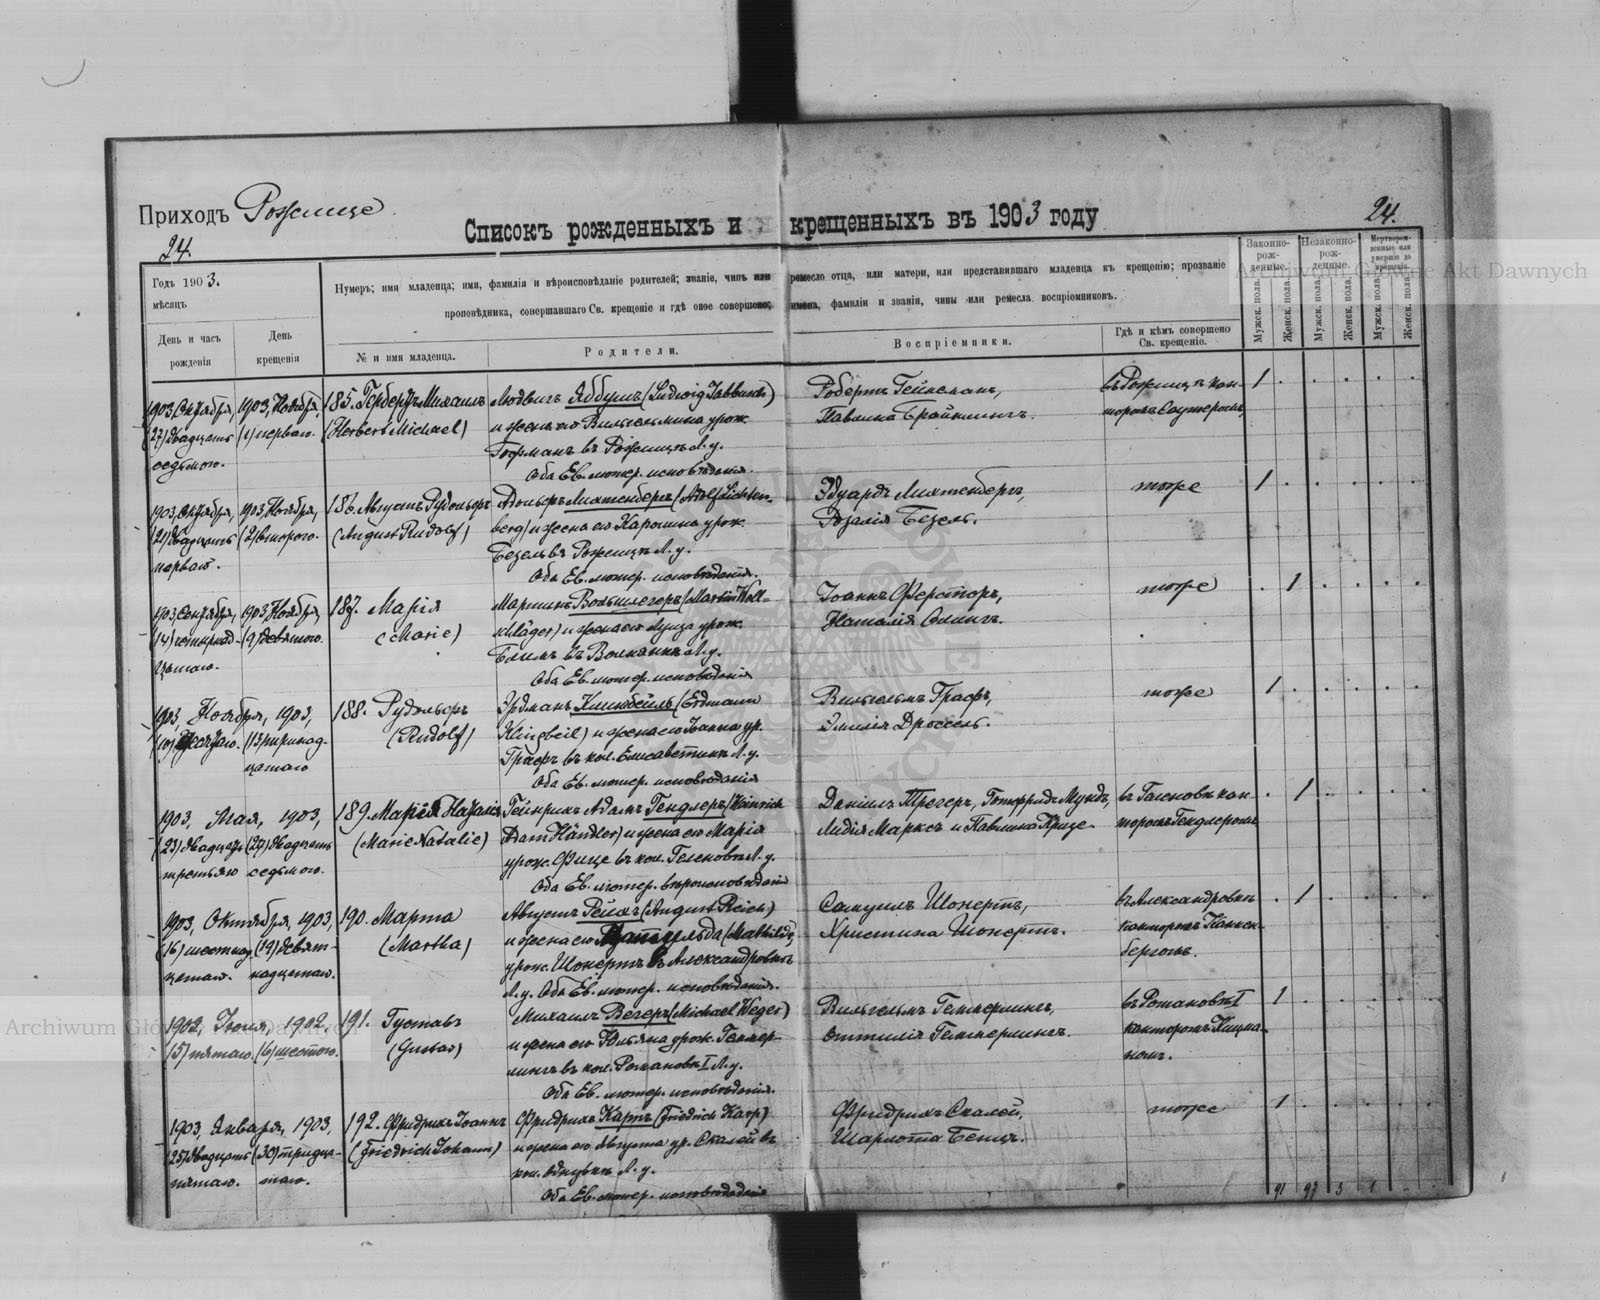 Приходъ Рожище.
24.
Списокъ рожденныхъ и крещенныхъ въ 1903 году
24.
Годъ 1903.
мѣсяцъ
День и часъ рожденія
День крещенія
Нумеръ; имя младенца; имя, фамилія и вѣроисповѣданіе родителей; званіе, чинъ или ремесло отца, или матери, или представившаго младенца къ крещенію; прозваніе
проповѣдника, совершавшаго Св. крещеніе и гдѣ оное совершено; имена, фамиліи и званія, чины или ремесла воспріемниковъ.
№ и имя младенца.
Родители.
Воспріемники.
Гдѣ и кѣмъ совершено Св. крещеніе.
Законно-рож-денные.
Незаконно-рож-денные.
Мертворож-денные или умершіе до крещенія.
Мужск. пола.
Женск. пола.
Мужск. пола.
Женск. пола.
Мужск. пола.
Женск. пола.
1903, Октября, 1903, Ноября, 185. Гербертъ Михаилъ Людвигъ Яббушъ (Ludwig Jabbusch) Робертъ Гейнеманъ, въ Рожищѣ кан- 1
(27) двадцать (1) перваго. (Herbert Michael) и жена его Вильгельмина урож. Павлина Брайклингъ. торомъ
седьмого. Гофманъ въ Рожищѣ Л. у.
Оба Ев. лютер. исповѣданія.
1903, Октября, 1903 Ноября, 186. Августъ Рудольфъ Адольфъ Лихтенбергъ (Adolf Lichten- Эдуардъ Лихтенбергъ, тоже 1
(21) двадцать (2) второго. (August Rudolf) berg) и жена его Каролина урож. Розалія Безель.
перваго. Безель въ Рожищѣ Л. у.
Оба Ев. лютер. исповѣданія.
1903, Сентября, 1903 Ноября, 187. Марія Мартинъ Вольшлегеръ (Martin Woll- Іоаннъ Ферстеръ, тоже 1
(14) четырнад- (9) девятого. (Marie) schläger) и жена его Луиза урож. Наталія
цатаго. въ Л. у.
Оба Ев. лютер. исповѣданія
1903, Ноября, 1903, 188. Рудольфъ Эрдманъ Клингбейль (Erdmann Вильгельмъ Графъ, тоже 1
(10) десятаго. (13) тринад- (Rudolf) Klingbeil) и жена его Іоанна ур. Эмилія Дроссель.
цатаго Графъ въ кол. Елисаветинъ Л. у.
Оба Ев. лютер. исповѣданія
1903, Мая, 1903, 189. Марія Наталія Гейнрихъ Адамъ Гендлеръ (Heinrich Даніилъ Трегеръ, Готфридъ Мундъ, въ Геленовкѣ кан- 1
(23) двадцать (27) двадцать (Marie Natalie) Adam Händler) и жена его Марія Лидія Марксъ и Павлина Крице. торомъ Гендлеромъ
третьяго седьмого. урож. Фице въ кол. Геленовкѣ Л. у.
Оба Ев. лютер. вѣроисповѣданія
1903, Октября, 1903, 190. Марта Августъ Рейхъ (August Reich) Самуилъ Шонертъ, въ Александровкѣ 1
(16) шестнад- (19) девят- (Martha) и жена его Матильда (Mathilde) Христина Шонертъ. канторомъ
цатаго. надцатаго. урож. Шонертъ въ Александровкѣ бергомъ.
Л. у. Оба Ев. лютер. исповѣданія.
1902, Іюля, 1902, 191. Густавъ Михаилъ Вегеръ (Michael Weger) Вильгельмъ Геммерлингъ, въ Романовкѣ I 1
(5) пятаго. (6) шестого. (Gustav) и жена его Юльяна урож. Геммер- Оттилія Геммерлингъ. канторомъ
лингъ въ кол. Романовкѣ I Л. у.
Оба Ев. лютер. исповѣданія.
1903, Января, 1903, 192. Фридрихъ Іоаннъ Фридрихъ Карпъ (Friedrich Karp) Фридрихъ Скалей, тоже 1
(25) двадцать (30) тридца- (Friedrich Johann) и жена его Августа ур. Скалей въ Шарлота Бенцъ.
пятаго. таго. кол. Л. у.
Оба Ев. лютер. исповѣданія
91 97 3 1
Archiwum Główne Akt Dawnych
Archiwum Główne Akt Dawnych